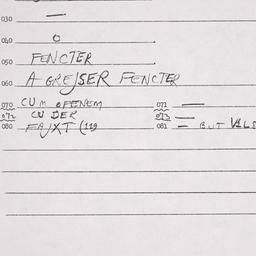 030 —
040 O
050 FENCTER
060 A GREJSER FENCTER
070 CUM OFENEM 071 —
072 CU DER 073 —
080 FAJXT (119 081 — BUT VALS